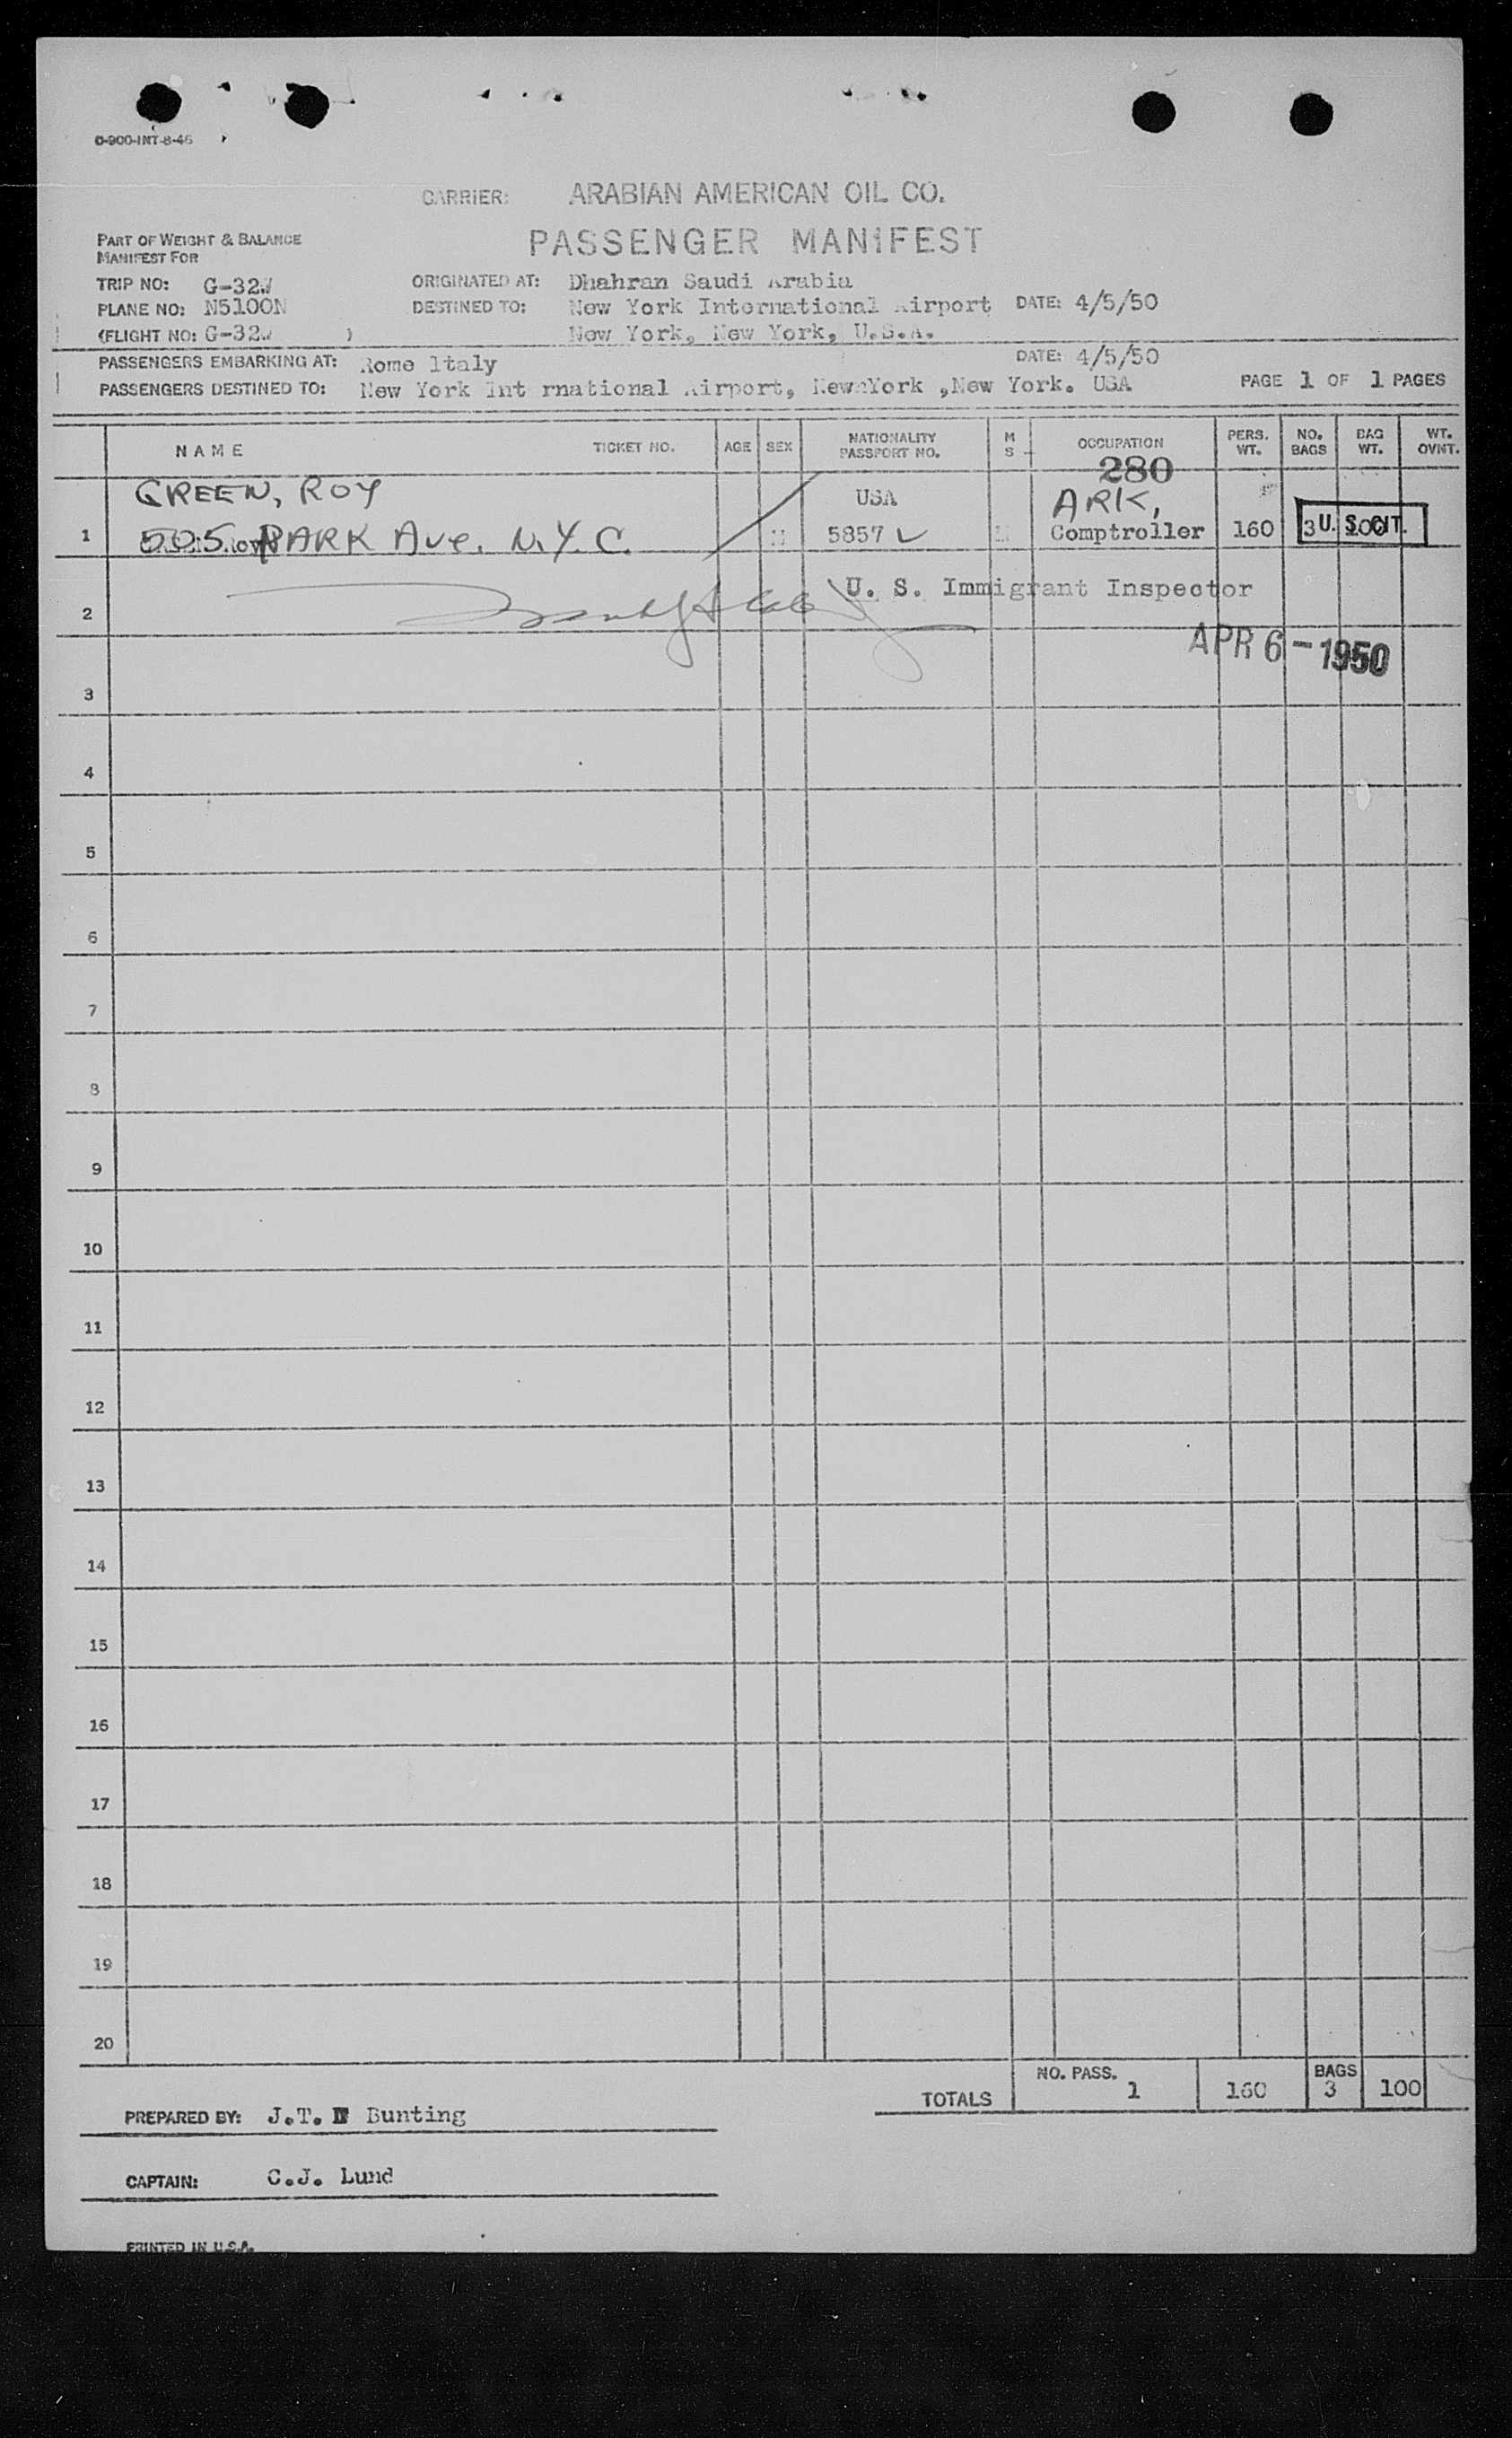 O-900-INT-8-46
CARRIER: ARABIAN AMERICAN OIL CO.
PART OF WEIGHT & BALANCE
MANIFEST FOR
PASSENGER MANIFEST
TRIP NO: G-32W ORIGINATED AT: Dhahran Saudi Arabia
PLANE NO: N5100N DESTINED TO: New York International Airport DATE: 4/5/50
(FLIGHT NO: G-32W ) New York, New York, U.S.A.
PASSENGERS EMBARKING AT: Rome Italy DATE: 4/5/50
PASSENGERS DESTINED TO: New York Int rnational Airport, New York ,New York. USA PAGE 1 OF 1 PAGES
NAME TICKET NO. AGE SEX NATIONALITY PASSPORT NO. M S OCCUPATION PERS. WT. NO. BAGS BAG WT. WT. OVNT.
280
GREEN, ROY USA ARK,
1 505 PARK Ave. N.Y.C. M 5857 M Comptroller 160 3 U. S. CIT. 100
U. S. Immigrant Inspector
2
APR 6 - 1950
3
4
5
6
7
8
9
10
11
12
13
14
15
16
17
18
19
20
TOTALS NO. PASS. 1 160 BAGS 3 100
PREPARED BY: J.T. Bunting
CAPTAIN: C.J. Lund
PRINTED IN U.S.A.